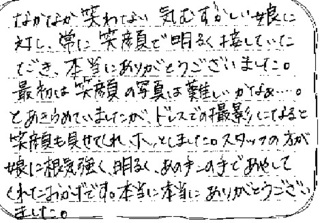 なかなか笑わない気むずかしい娘に
対し、常に笑顔で明るく接していた
だき、本当にありがとうございました。
最初は笑顔の写真は難しいかなぁ…。
とあきらめていましたが、ドレスでの撮影になると
笑顔も見せてくれ、ホッとしました。スタッフの方が
娘に根気強く、明るく、あの手この手であやして
くれたおかげです。本当に本当にありがとうござい
ました。